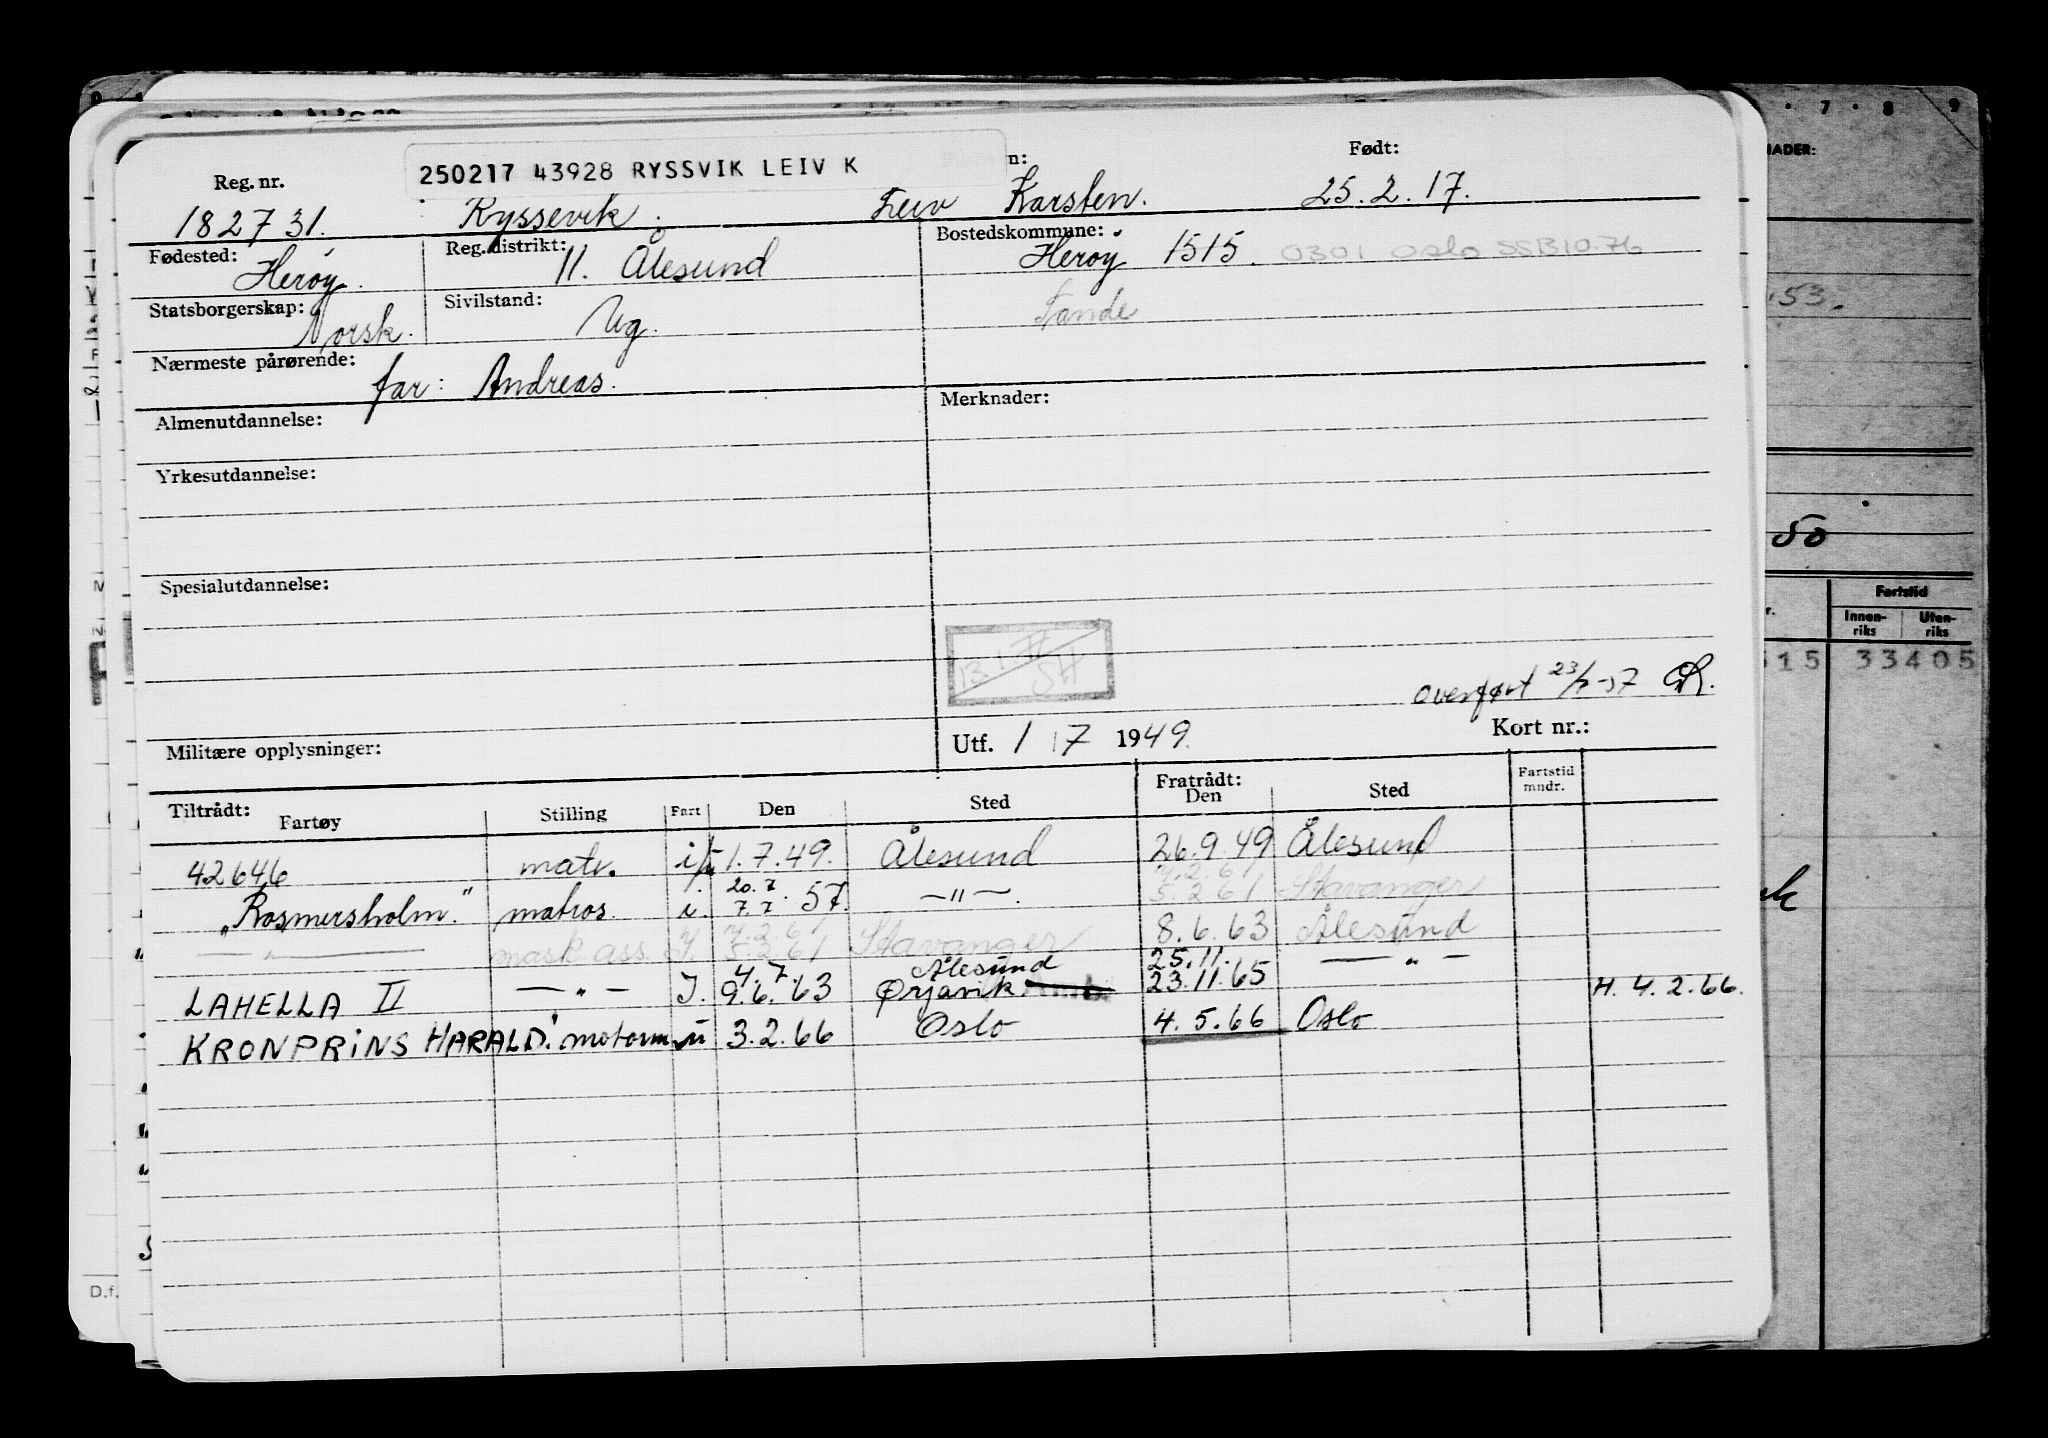 Reg. nr.
250217 43928 RYSSVIK LEIV K
Født:
182731. Ryssevik. Leiv Karsten. 25.2.17.
Fødested: Herøy.
Reg. distrikt: 11. Ålesund
Bostedskommune: Herøy 1515. 0301 Oslo SSB10.76
Statsborgerskap: Norsk.
Sivilstand: Ug.
Sande
Nærmeste pårørende: far: Andreas.
Almenutdannelse:
Merknader:
Yrkesutdannelse:
Spesialutdannelse:
Overført
Militære opplysninger:
Utf. 1 / 7 1949.
Kort nr.:
Tiltrådt: Fartøy Stilling Fart Den Sted Fratrådt: Den Sted Fartstid mndr.
42646 matr. 1.7.49. Ålesund 26.9.49 Ålesund
7.2.61
20.7
"Rosmersholm." matros. i. 7.7. 57. —"— 5.2.61 Stavanger
7.2.61
—"— mask. ass. I. 5.2.61 Stavanger 8.6.63 Ålesund
4.7. Ålesund 25.11.
LAHELLA II —"— I. 9.6.63 Ørjavik 23.11.65 —"— H. 4.2.66.
KRONPRINS HARALD. motorm. u 3.2.66 Oslo 4.5.66 Oslo
NADER:
.53.
50
Fartstid
Innen-riks
Uten-riks
515 33405
D.f.